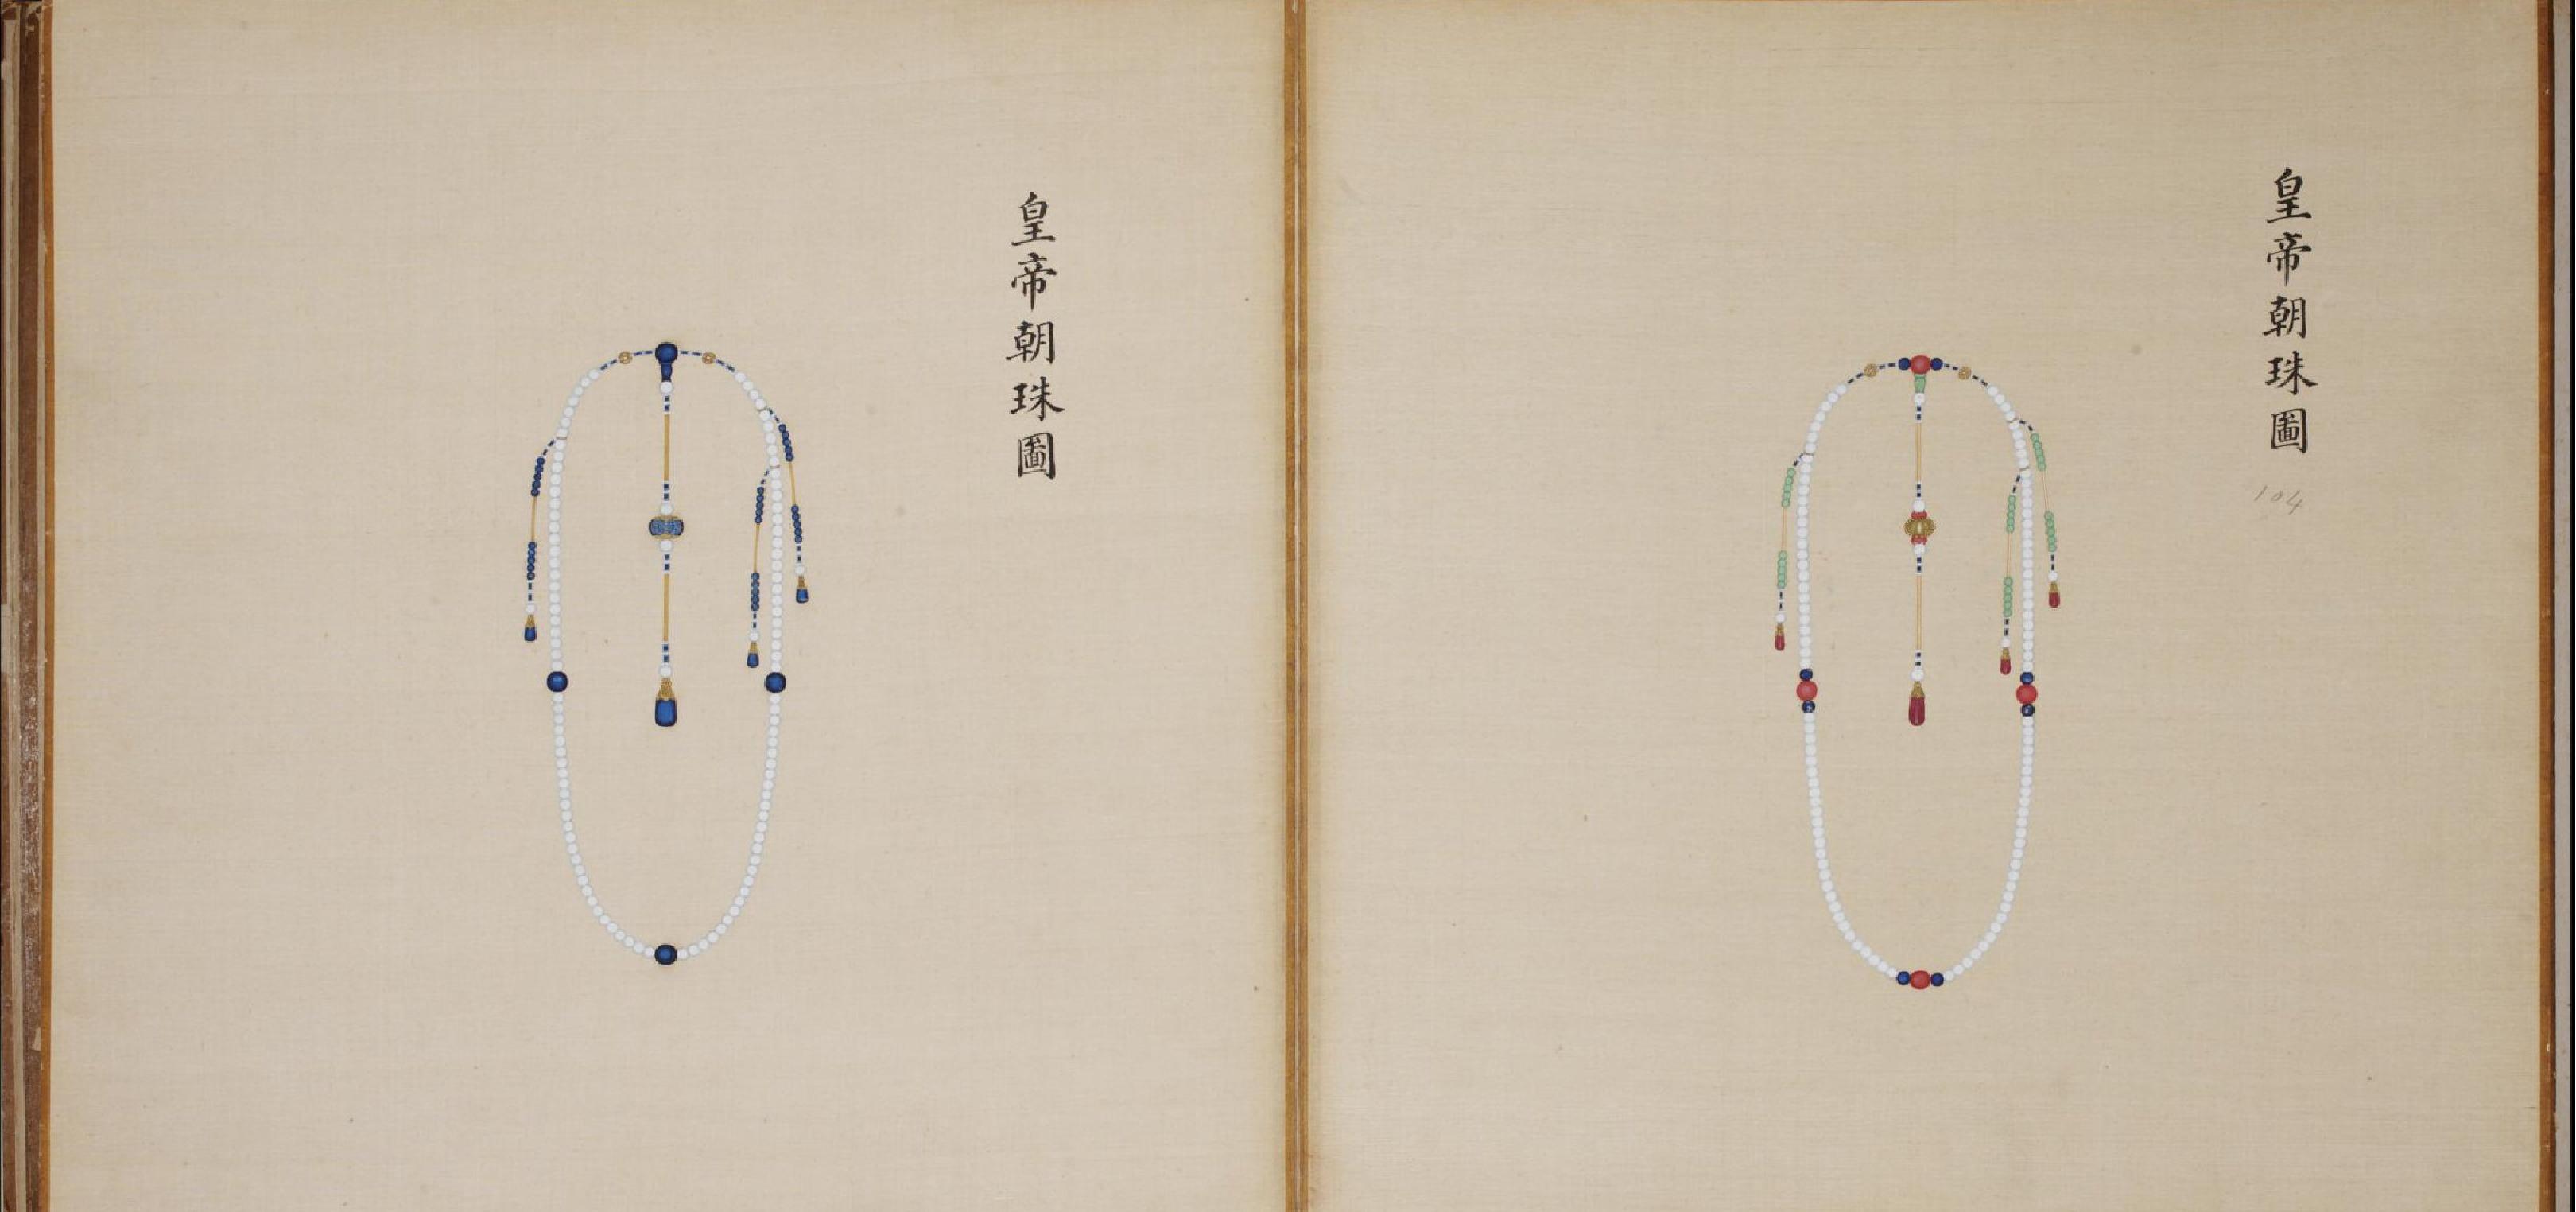 皇帝朝珠圖
104
皇帝朝珠圖